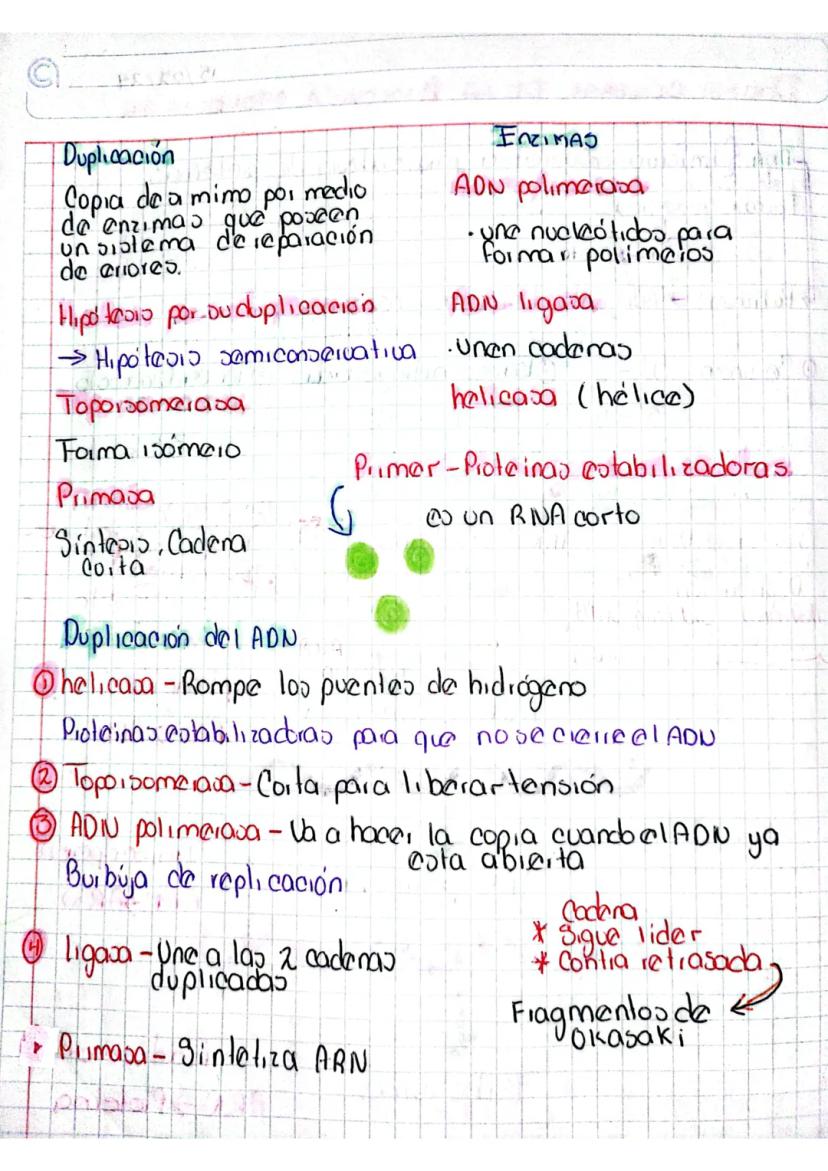 Duplicación
Copia de a mimo por medio
de enzimas que poseen
un sistema de reparación
de errores.
Hipótesis por su duplicación
→ Hipótesis semiconservativa
Topoisomerasa
Forma isómero
Primasa
Síntesis, Cadena
corta
Enzimas
ADN polimerasa
· une nucleótidos para
formar polímeros
ADN ligasa
· unen cadenas
helicasa (hélice)
Primer - Proteinas estabilizadoras
es un RNA corto
Duplicación del ADN
① helicasa - Rompe los puentes de hidrógeno
Proteinas estabilizadoras para que no se cierre el ADN
② Topoisomerasa - Corta para liberar tensión
③ ADN polimerasa - Va a hacer la copia cuando el ADN ya
esta abierta
Burbúja de replicación
④ ligasa - Une a las 2 cadenas
duplicadas
Primasa - Sintetiza ARN
Cadena
* Sigue lider
* Contra retrasada
Fragmentos de
Okasaki